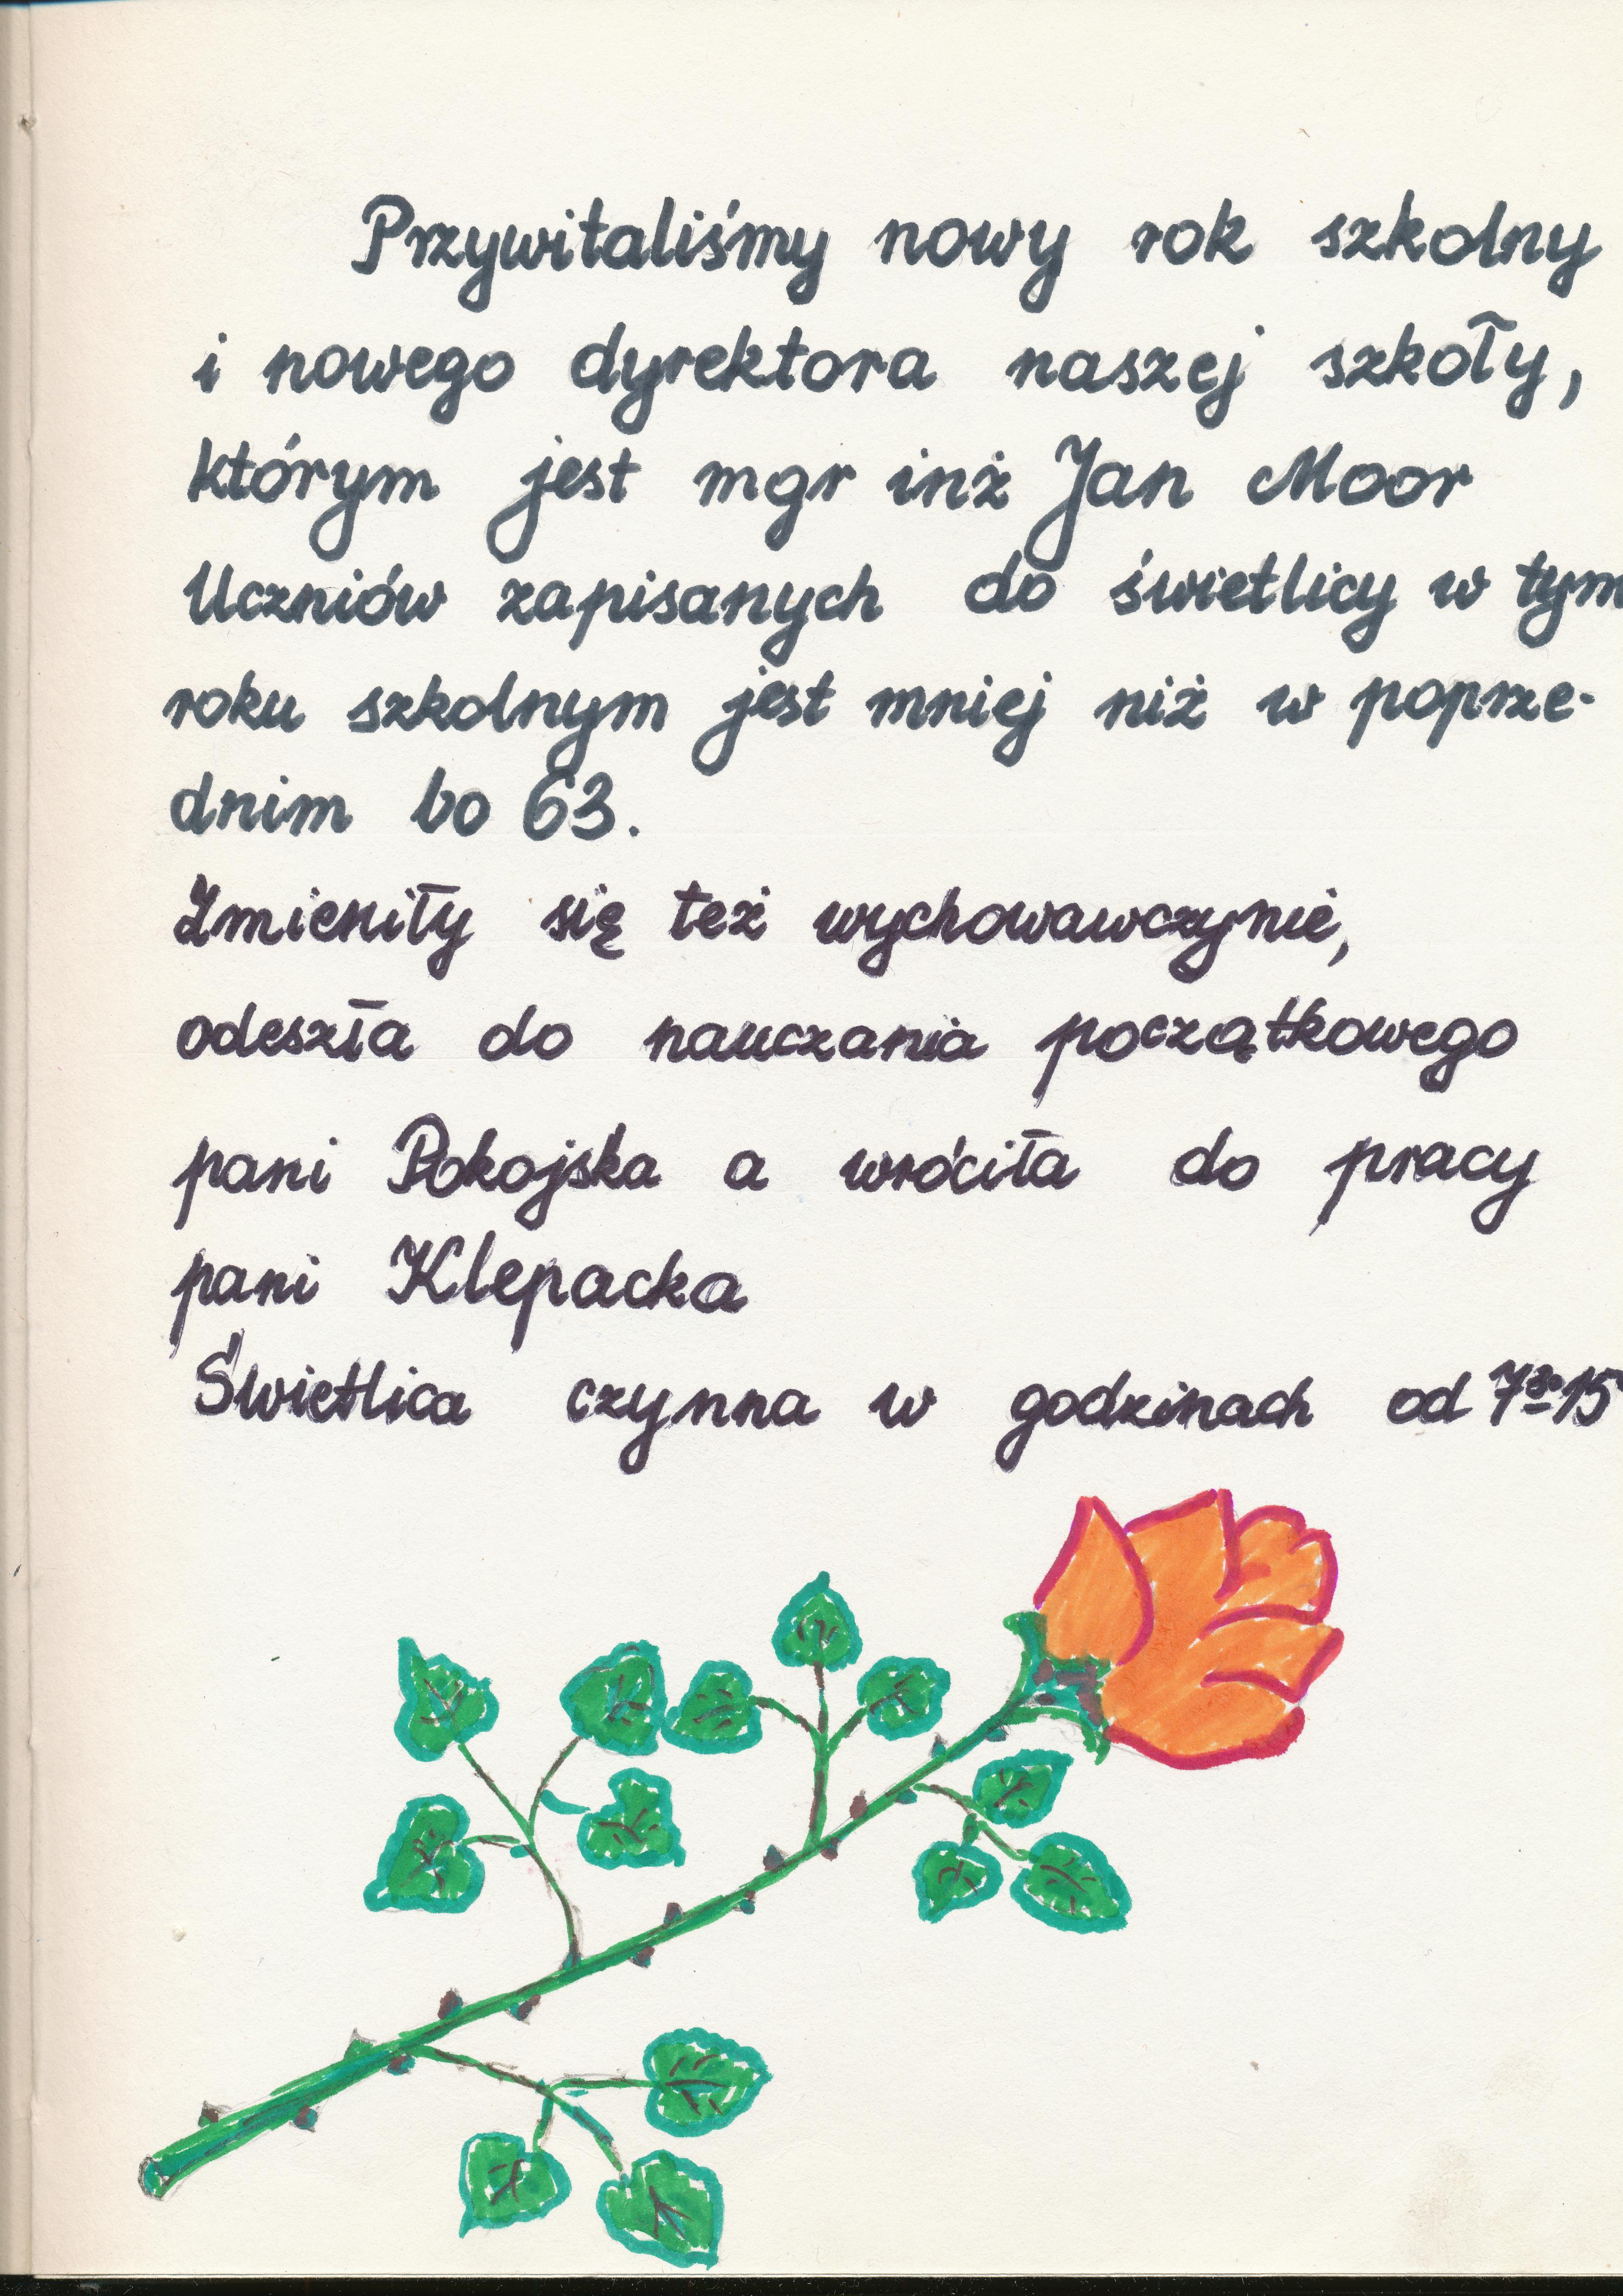 Przywitaliśmy nowy rok szkolny
i nowego dyrektora naszej szkoły,
którym jest mgr inż Jan Moor
Uczniów zapisanych do świetlicy w tym
roku szkolnym jest mniej niż w poprze-
dnim bo 63.
Zmieniły się też wychowawczynie,
odeszła do nauczania początkowego
pani Pokojska a wróciła do pracy
pani Klepacka
Świetlica czynna w godzinach od 7³⁰-15